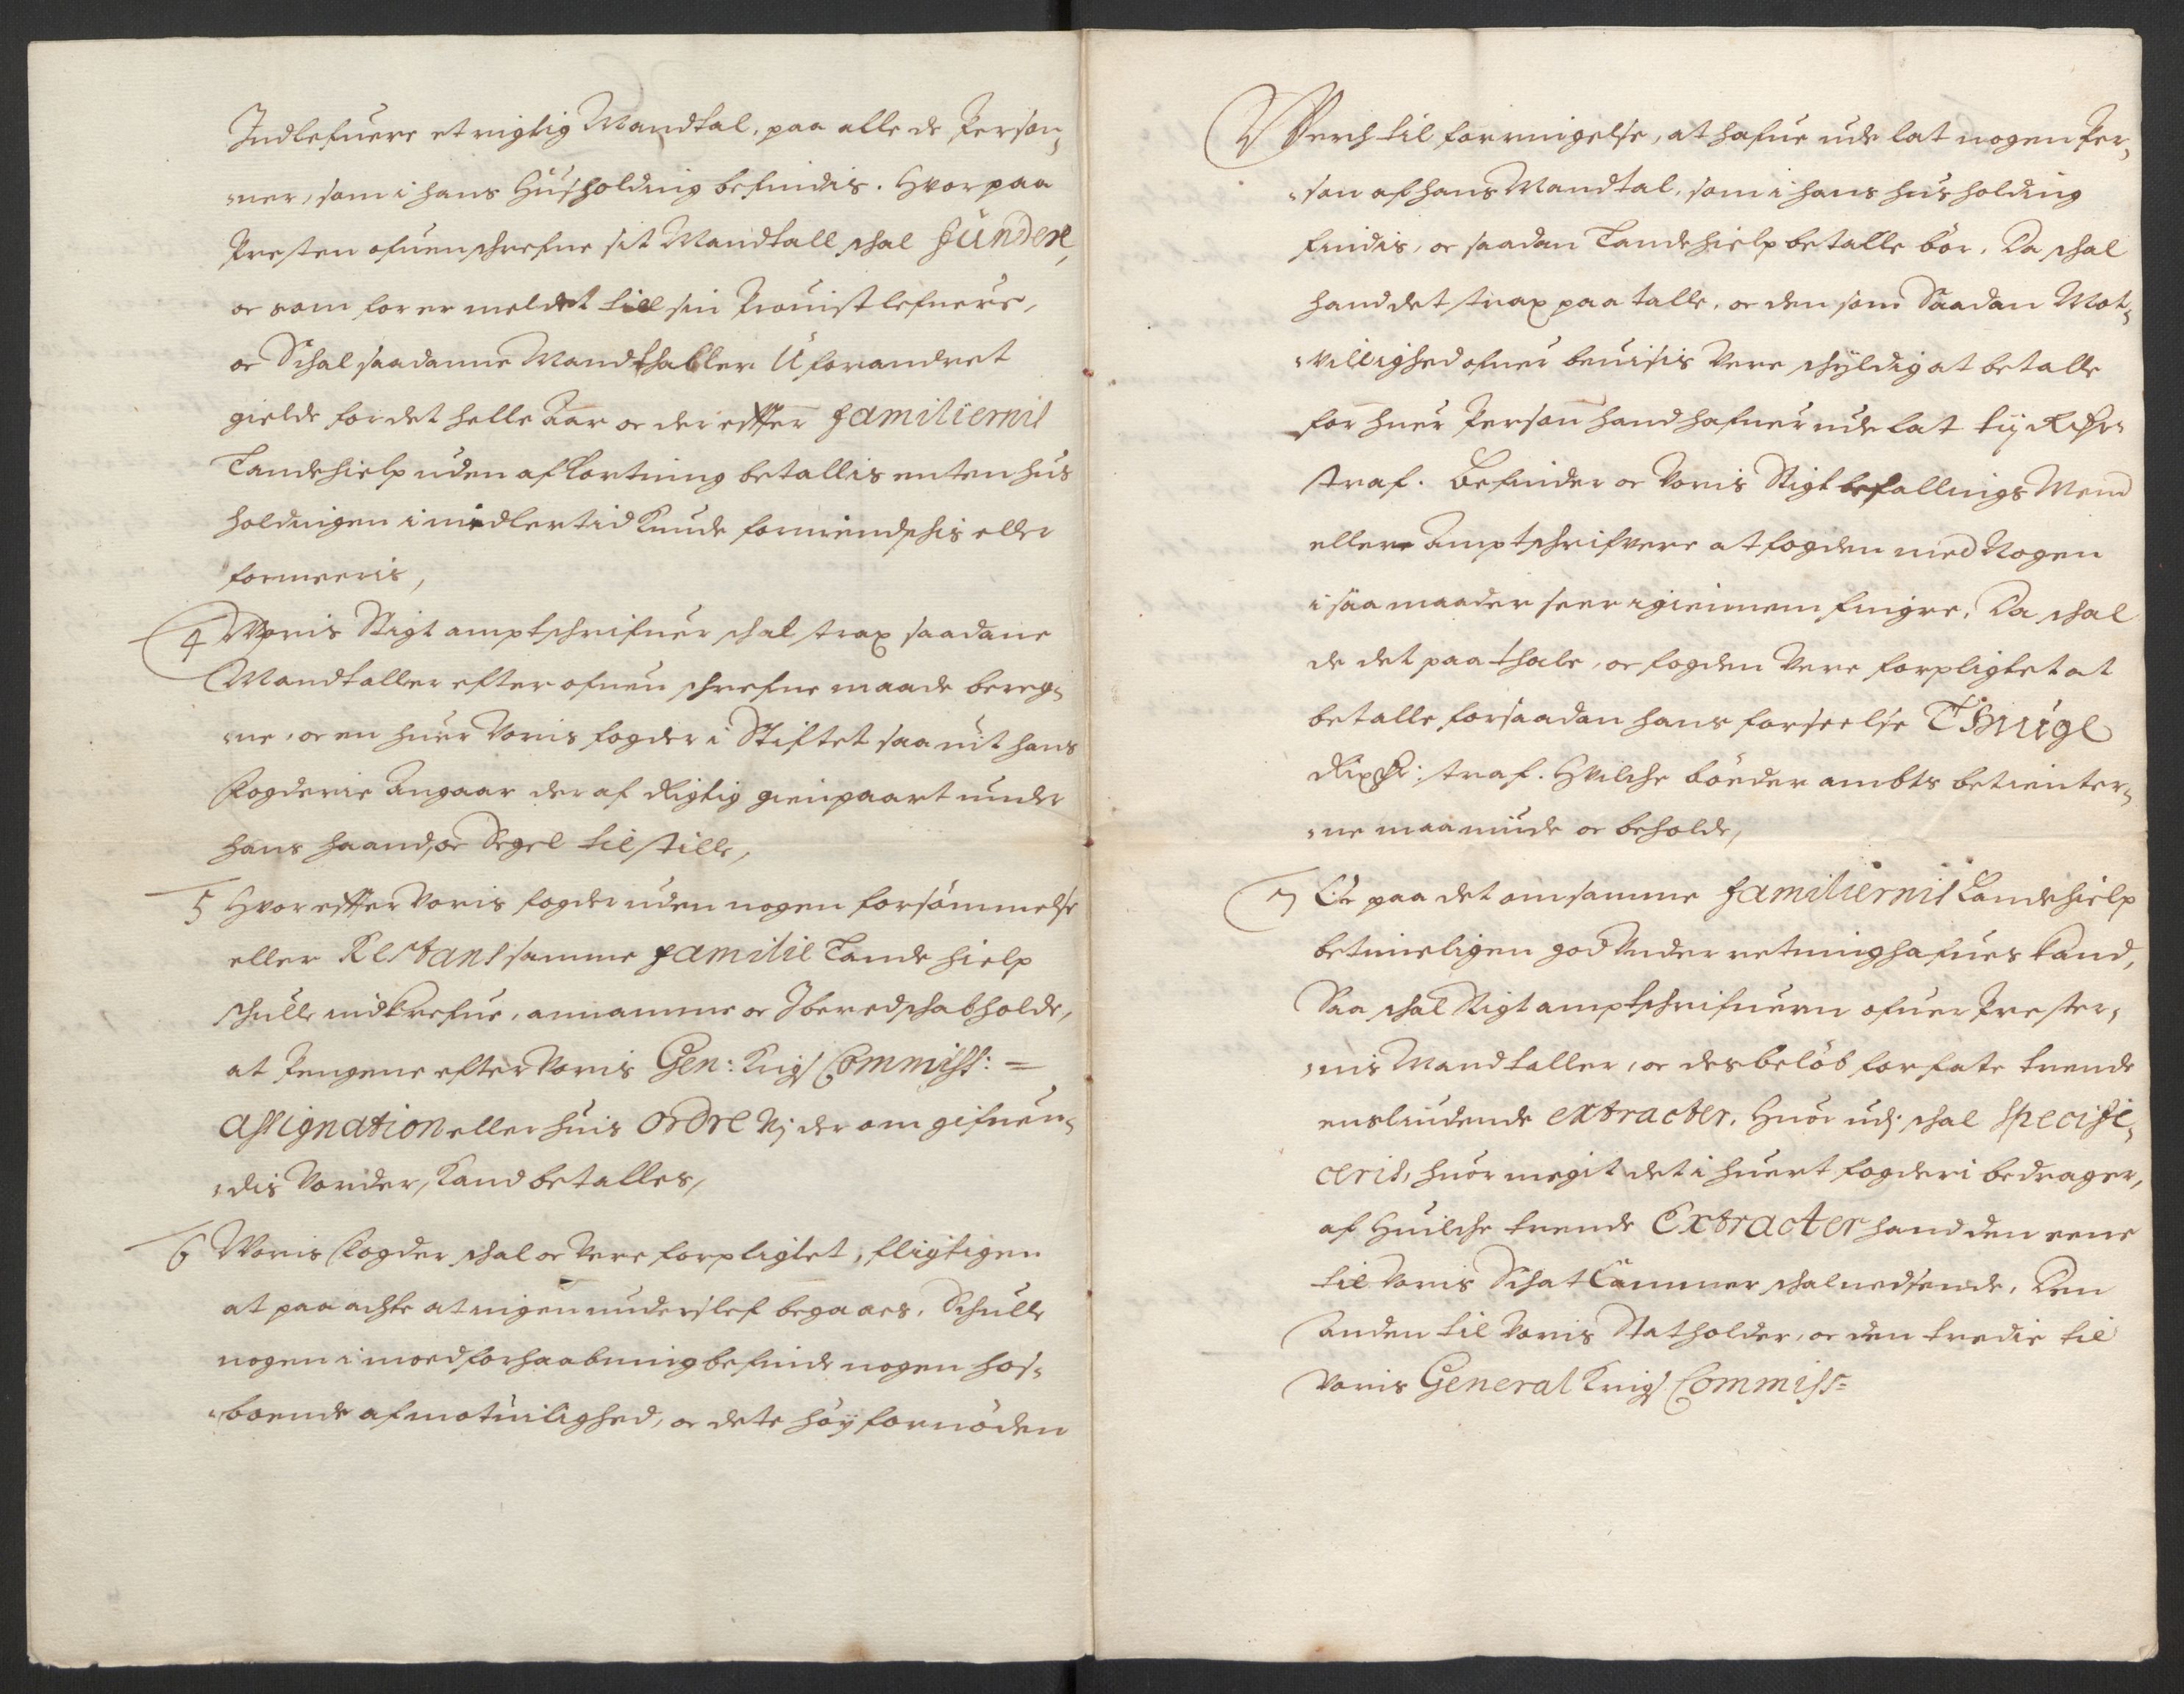 Indlefuere et rigtig Mandtal, paa alle de Person,,
,,ner, som i hans Hüsholding befindis. Hvorpaa
Presten ofuenschrefne sit Mandtall schal fündere,
oc som for er meldet till sin Prouist lefuere,
oc Schal saadanne Mandthaller Uforandret
gielde for det helle aar oc der effter familiernis
Landehielp uden afKortning betallis enten hus
holdingen i midlertid Kunde formindschis eller
formeeris,
4 Woris Stigt amptschrifuer schal strax saadane
Mandtaller efter ofuen schrefne maade bereg,,
,,ne, oc en huer Voris fogder i Stiftet saa uit hans
Fogderie Angaar der af Rigtig gienpaart under
hans haand, oc Segel tilstille,
5 Hvor effter Voris fogder uden nogen forsömmelse
eller Restans samme familie Lande hielp
schulle indkrefue, annamme oc I beredschab holde,
at Pengene efter Voris Gen: Krigs Commiss: =
assignation eller huis ordre Vj der om gifuen,,
,,dis Vorder, Kand betalles,
6 Woris Fogder schal oc Vere forpligtet, fligtigen
at paa achte at ingen underslef begaaes, Schulle
nogen imod forhaabning befinde nogen hos,,
,,boende af motuilighed, oc dete höy fornöden
Verch til forringelse, at hafue ude lat nogen Per,,
,,son af hans Mandtal, som i hans husholding
findis, oc saadan Landehielp betalle bör, Da schal
hand det strax paa talle, oc den som Saadan Mot,,
,,villighed ofuer beuisis Vere schyldig at betalle
for huer Person hand hafuer ude lat tij Rixdr
straf. Befinder oc Voris Stigt befallings Mend
eller Amptschrifvere at fogden med Nogen
i saa maader seer igiennem fingre, Da schal
de det paa thale, oc fogden Vere forpligtet at
betalle for saadan hans forseelse Thiuge
Rixdr: straf. Hvilche böeder ambts betienter,,
,,ne maa niude oc beholde,
7 Oc paa det om samme familiernis Landehielp
betimeligen god Underretning hafues kand,
Saa schal Stigt amptschrifueren ofuer Prester,,
,,nis Mandtaller, oc des belöb forfate trende
ensliudende extracter, Huor udj schal specifi,,
ceris, huor megit det i huert fogderi bedrager,
af Huilche trende Extracter hand den eene
til Voris Schat Cammer schal nedsende, Den
Anden til Voris Statholder, oc den tredie til
Voris General Krigs Commiss=